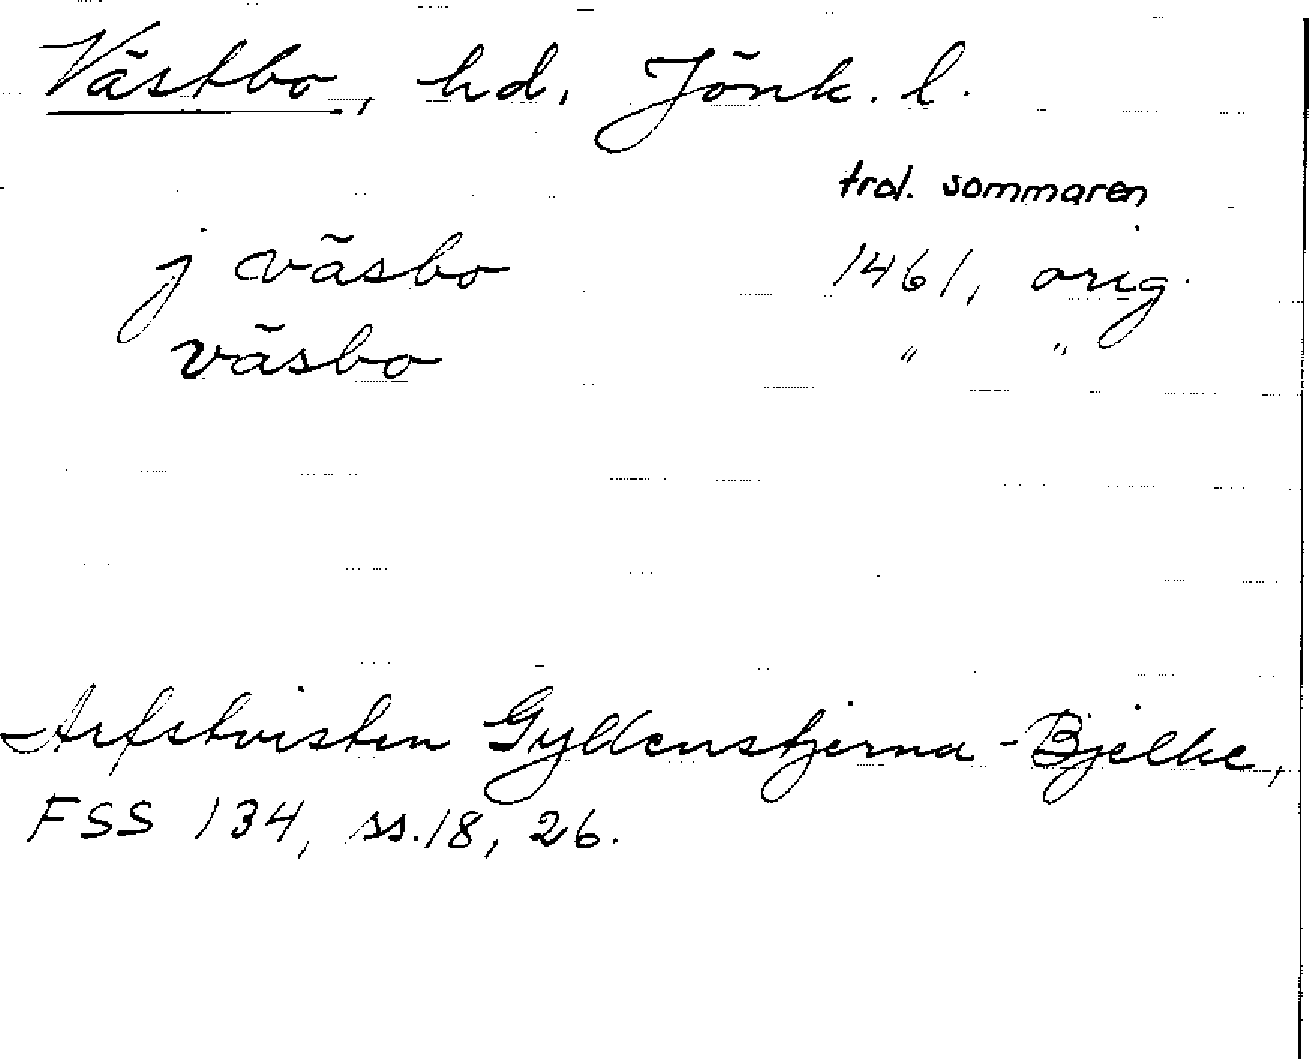 Västbo, hd, Jönk. l.
trol. sommaren
j väsbo 1461, orig.
väsbo " "
Arfstvisten Gyldenstjerna - Bjelke,
FSS 134, ss. 18, 26.